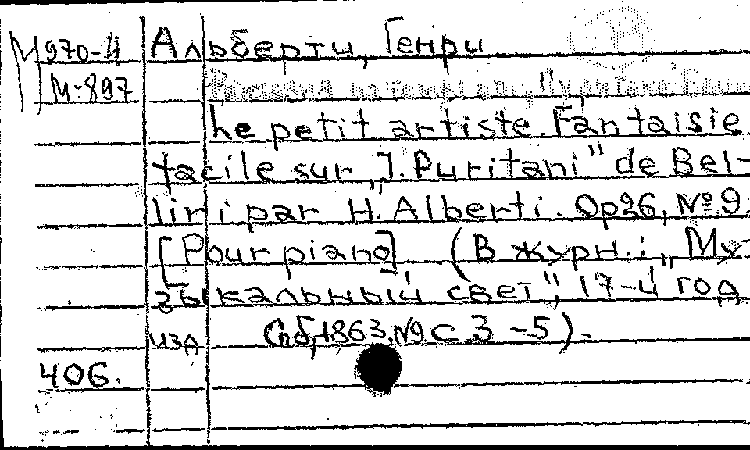 М970-4 Альберти, Генри
М-897
Le petit artiste. Fantaisie
facile sur „J. Puritani" de Bel-
lini par H. Alberti. Op26, №9.
[Pour piano] (В журн.: „Му-
зыкальный свет", 17-й год
изд Спб, 1863, №9 с. 3-5).
406.